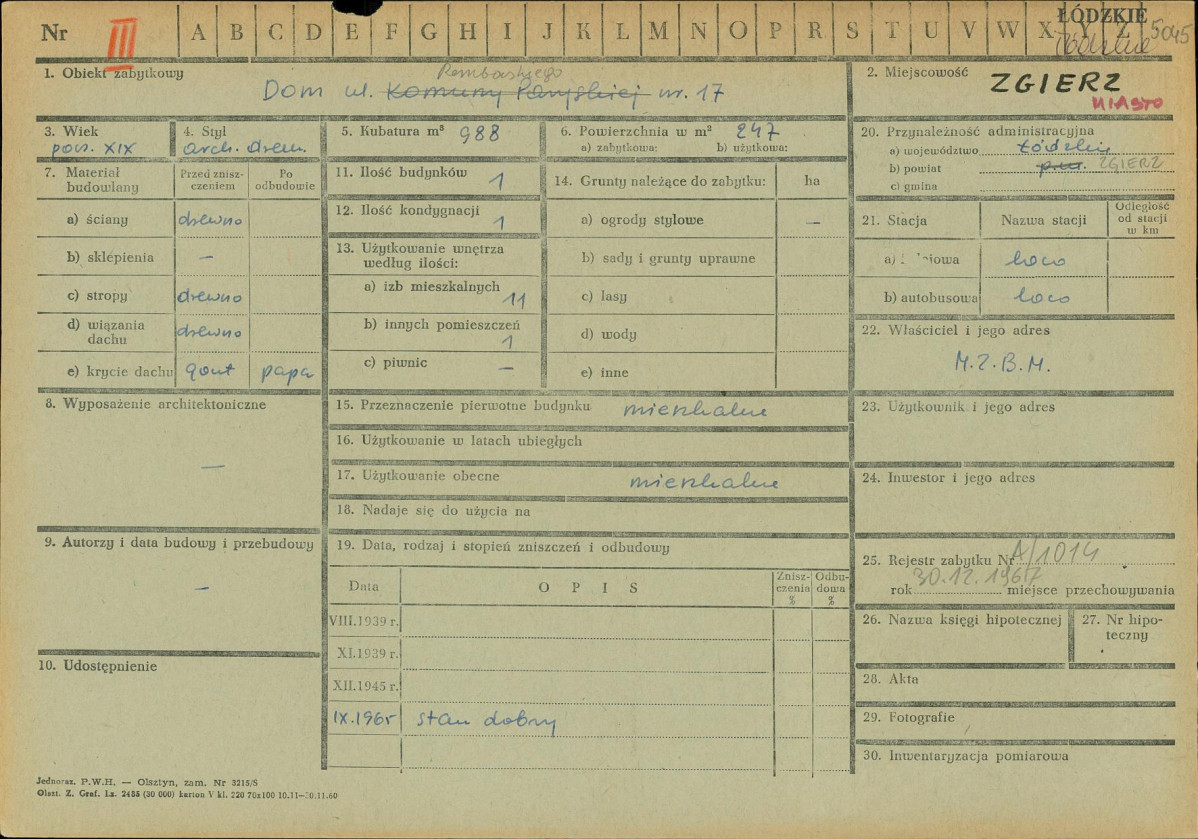 Nr III A B C D E F G H I J K L M N O P R S T U V W X Y Z
ŁÓDZKIE 5045
łódzkie
1. Obiekt zabytkowy
Rembowskiego
Dom ul. Komuny Paryskiej nr. 17
2. Miejscowość ZGIERZ
MIASTO
3. Wiek
poł. XIX
4. Styl
arch. drewn.
5. Kubatura m³ 988
6. Powierzchnia w m² 247
a) zabytkowa: b) użytkowa:
20. Przynależność administracyjna
a) województwo Łódzkie
b) powiat ZGIERZ
c) gmina
7. Materiał budowlany
Przed zniszczeniem
Po odbudowie
a) ściany drewno
b) sklepienia —
c) stropy drewno
d) wiązania dachu drewno
e) krycie dachu gont papa
11. Ilość budynków 1
12. Ilość kondygnacji 1
13. Użytkowanie wnętrza według ilości:
a) izb mieszkalnych 11
b) innych pomieszczeń 1
c) piwnic —
14. Grunty należące do zabytku: ha
a) ogrody stylowe —
b) sady i grunty uprawne
c) lasy
d) wody
e) inne
21. Stacja
Nazwa stacji
Odległość od stacji w km
a) loco
b) autobusowa loco
22. Właściciel i jego adres
M.Z.B.M.
8. Wyposażenie architektoniczne
—
15. Przeznaczenie pierwotne budynku mieszkalne
16. Użytkowanie w latach ubiegłych
17. Użytkowanie obecne mieszkalne
18. Nadaje się do użycia na
23. Użytkownik i jego adres
24. Inwestor i jego adres
9. Autorzy i data budowy i przebudowy
—
10. Udostępnienie
19. Data, rodzaj i stopień zniszczeń i odbudowy
Data OPIS Zniszczenia % Odbudowa %
VIII.1939 r.
XI.1939 r.
XII.1945 r.
IX.1965 stan dobry
25. Rejestr zabytku Nr A/1014
30.12.1967
rok miejsce przechowywania
26. Nazwa księgi hipotecznej
27. Nr hipoteczny
28. Akta
29. Fotografie
30. Inwentaryzacja pomiarowa
Jednoraz. P.W.H. — Olsztyn, zam. Nr 3215/S
Olszt. Z. Graf. Lz. 2485 (30 000) karton V kl. 220 70x100 10.11—30.11.60